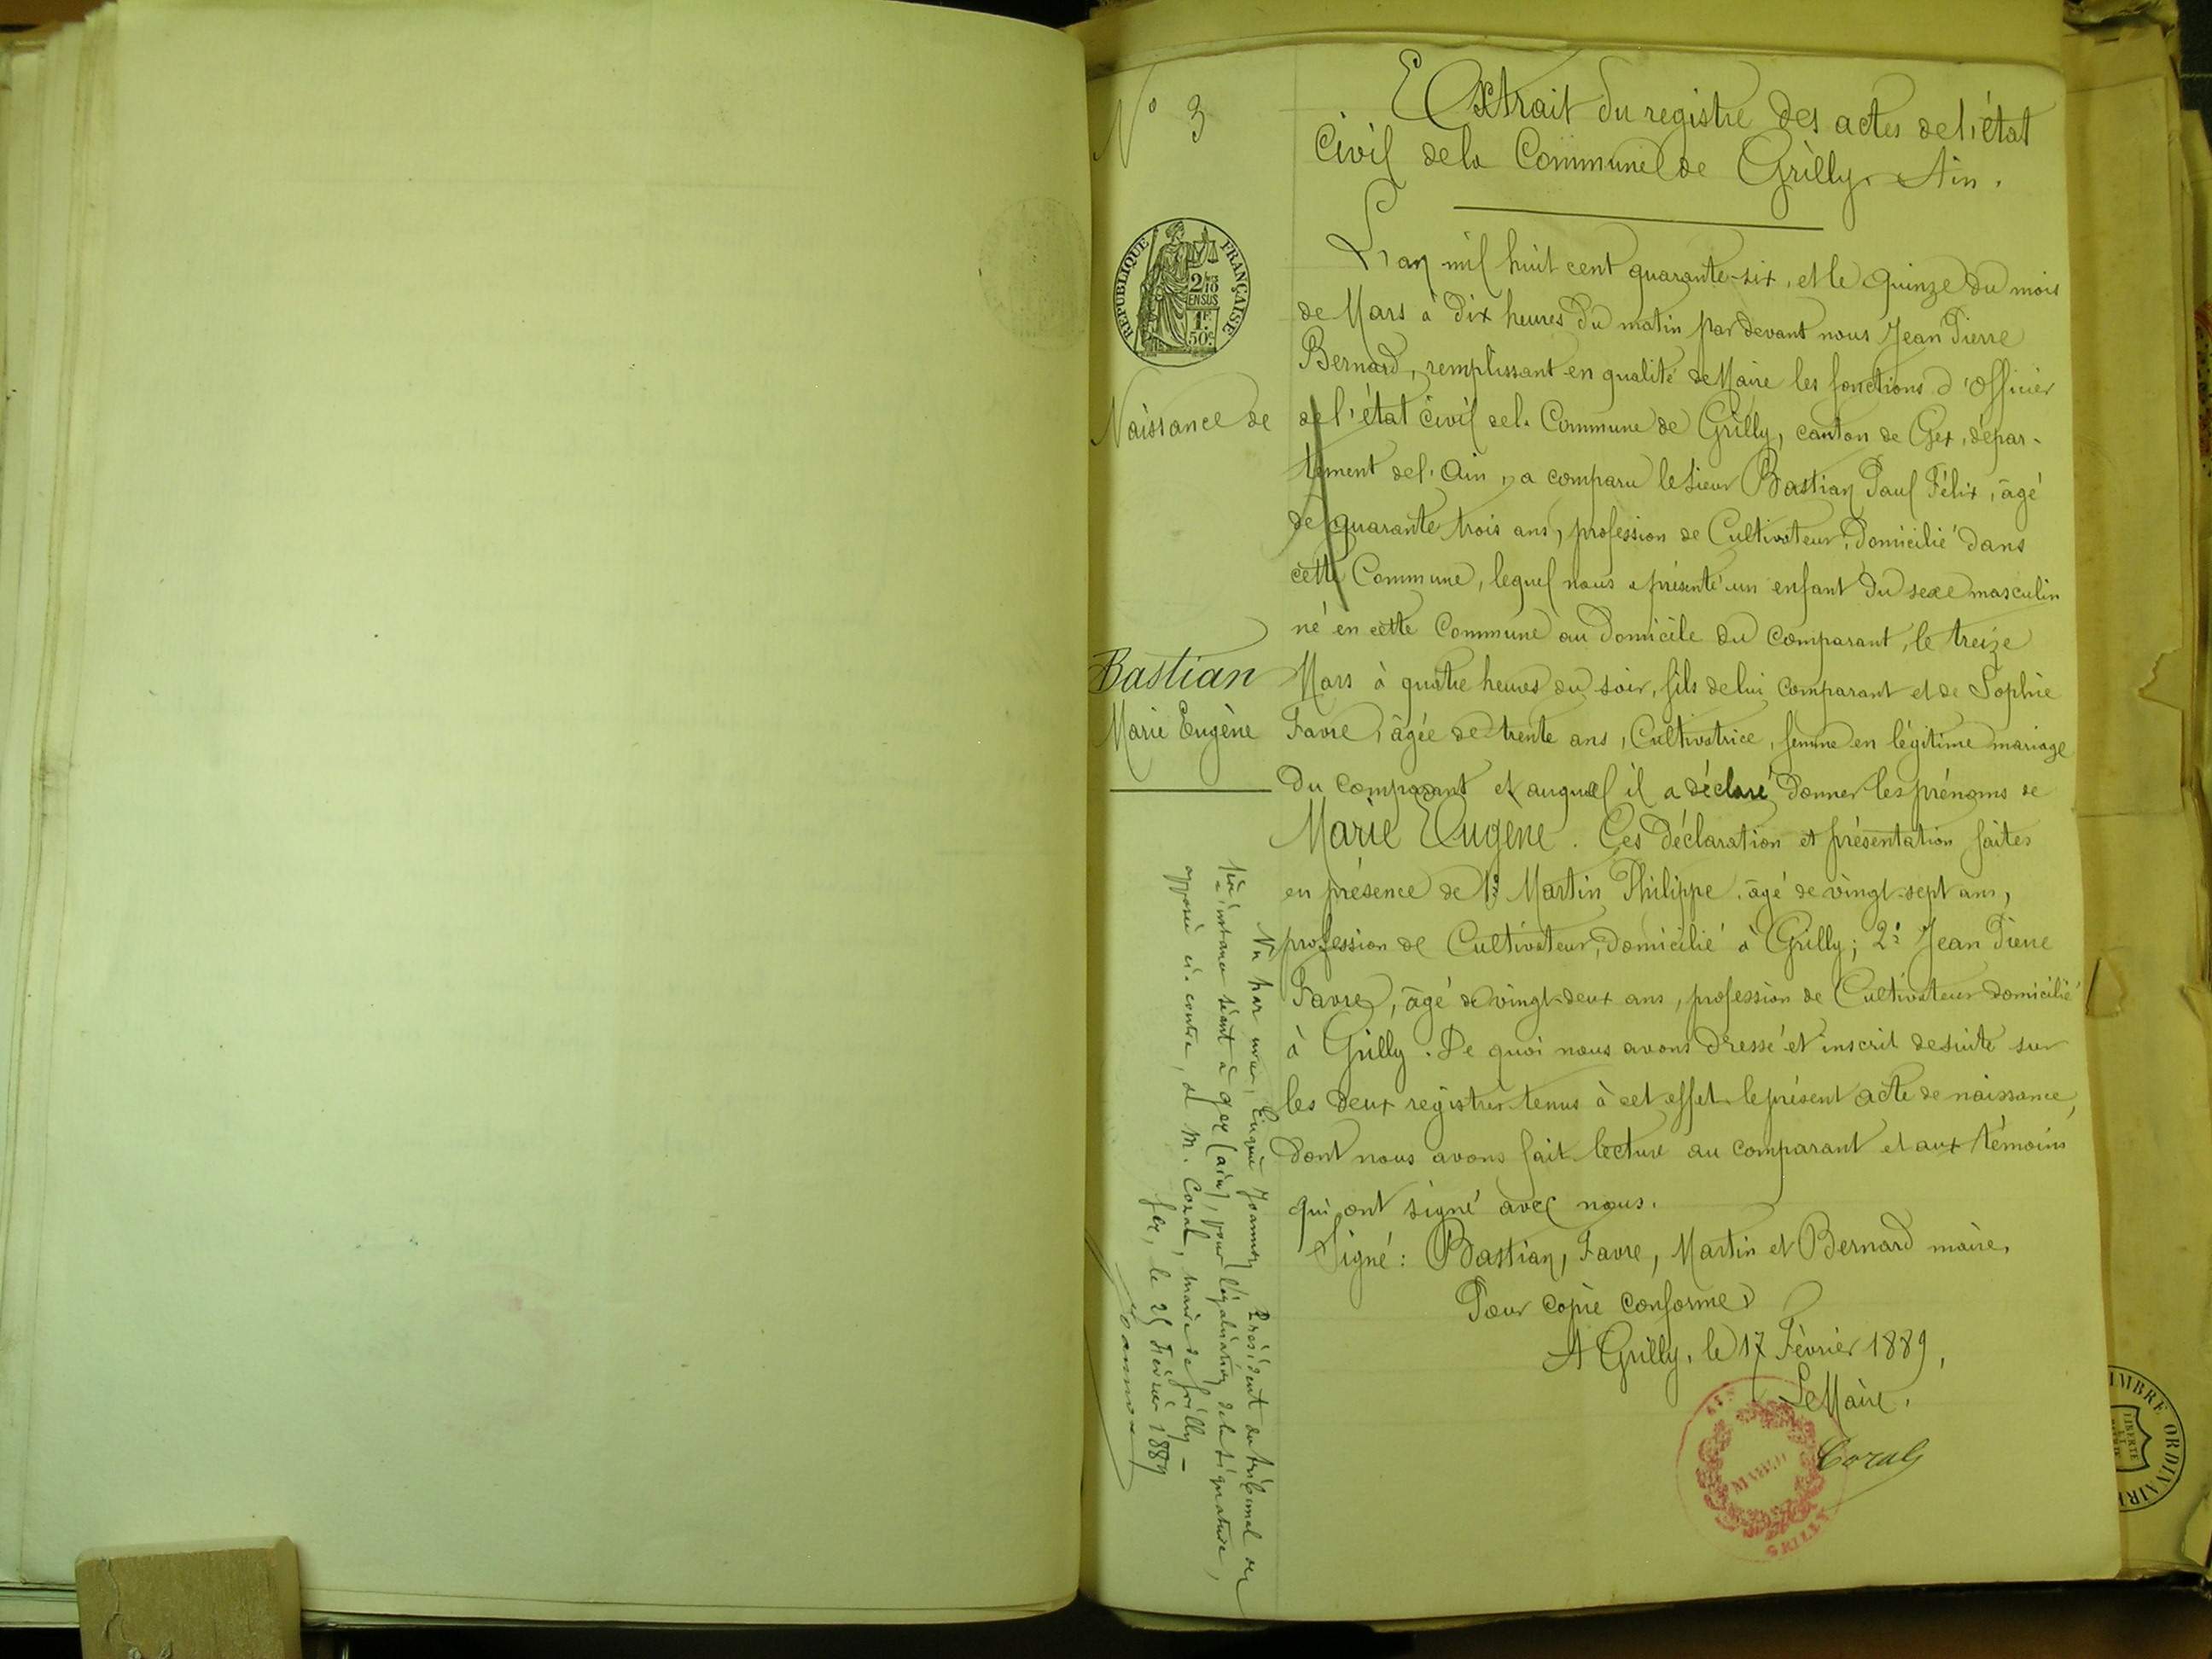 N° 3
Extrait du registre des actes de l'état
Civil de la Commune de Grilly. Ain.
RÉPUBLIQUE FRANÇAISE
2/10
EN SUS
1F
50c
L'an mil huit cent quarante-six, et le quinze du mois
de Mars à dix heures du matin par devant nous Jean Pierre
Bernard, remplissant en qualité de Maire les fonctions d'officier
Naissance de
de l'état civil de la Commune de Grilly, canton de Gex, dépar-
tement de l'Ain, a comparu le sieur Bastian Paul Félix, âgé
de quarante trois ans, profession de Cultivateur, domicilié dans
cette Commune, lequel nous a présenté un enfant du sexe masculin
né en cette Commune au domicile du comparant, le treize
Bastian
Marie Eugène
Mars à quatre heures du soir, fils de lui comparant et de Sophie
Favre, âgée de trente ans, Cultivatrice, femme en légitime mariage
du comparant et auquel il a déclaré donner les prénoms de
Marie Eugène. Ces déclaration et présentation faites
en présence de 1° Martin Philippe, âgé de vingt-sept ans,
profession de Cultivateur, domicilié à Grilly; 2° Jean Pierre
Favre, âgé de vingt-deux ans, profession de Cultivateur domicilié
à Grilly. De quoi nous avons dressé et inscrit desuite sur
les deux registres tenus à cet effet le présent acte de naissance,
dont nous avons fait lecture au comparant et aux témoins
qui ont signé avec nous.
Signé: Bastian, Favre, Martin et Bernard maire.
Pour copie conforme
A Grilly, le 17 Février 1889,
Le Maire.
AIN
MAIRIE
GRILLY
Vu par nous, Eugène Joannon, Président du tribunal de
1ère instance séant à Gex (ain), pour légalisation de la signature,
apposée ci-contre, de M. , maire de Grilly –
Gex, le 25 Février 1889
Joannon
TIMBRE ORDINAIRE
LIBERTÉ
ET